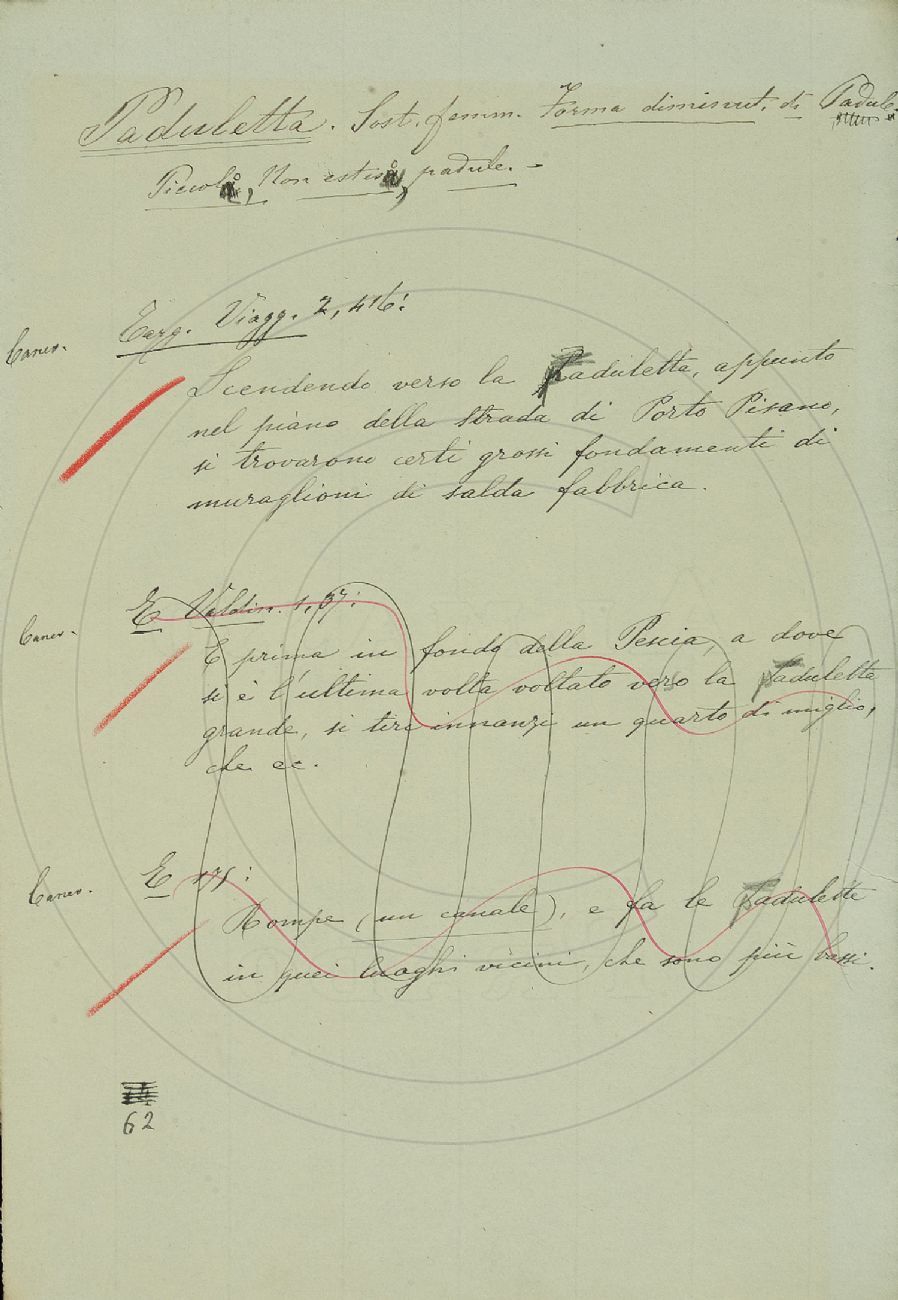 Paduletta. Sost. femm. Forma diminut. di Padule.
Piccola, Non estesa, padule. –
Targ. Viagg. 2, 416:
Canev.
Scendendo verso la Paduletta, appunto
nel piano della strada di Porto Pisano,
si trovarono certi grossi fondamenti di
muraglioni di salda fabbrica.
E Valdin. 1, 37:
Canev.
E prima in fondo della Pescia, a dove
si è l'ultima volta voltato verso la Paduletta
grande, si tiri innanzi un quarto di miglio,
che ec.
E 171:
Canev.
Rompe (un canale), e fa le Padulette
in quei luoghi vicini, che sono più bassi.
62